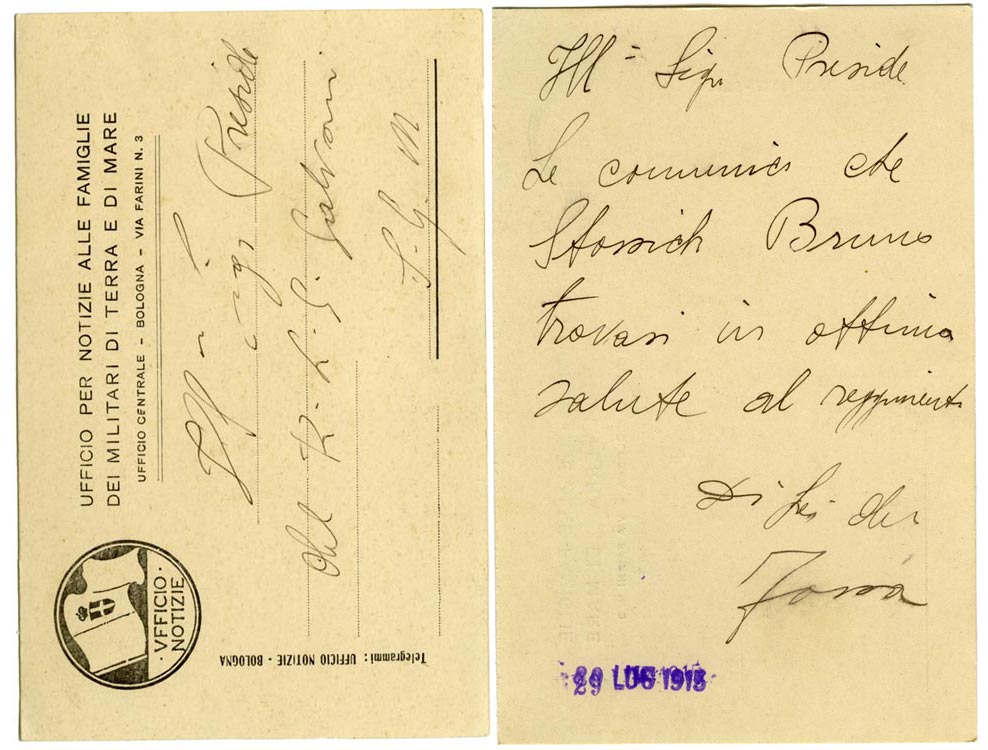 UFFICIO PER NOTIZIE ALLE FAMIGLIE
DEI MILITARI DI TERRA E DI MARE
UFFICIO CENTRALE - BOLOGNA - VIA FARINI N. 3
· VFFICIO ·
NOTIZIE
Telegrammi: UFFICIO NOTIZIE - BOLOGNA
Ill Sigr Preside
del R. L. G. Galvani
S. G. M
Ill Sigr Preside
Le comunico che
Stossich Bruno
trovasi in ottima
salute al reggimento
Di Lei
29 LUG 1915